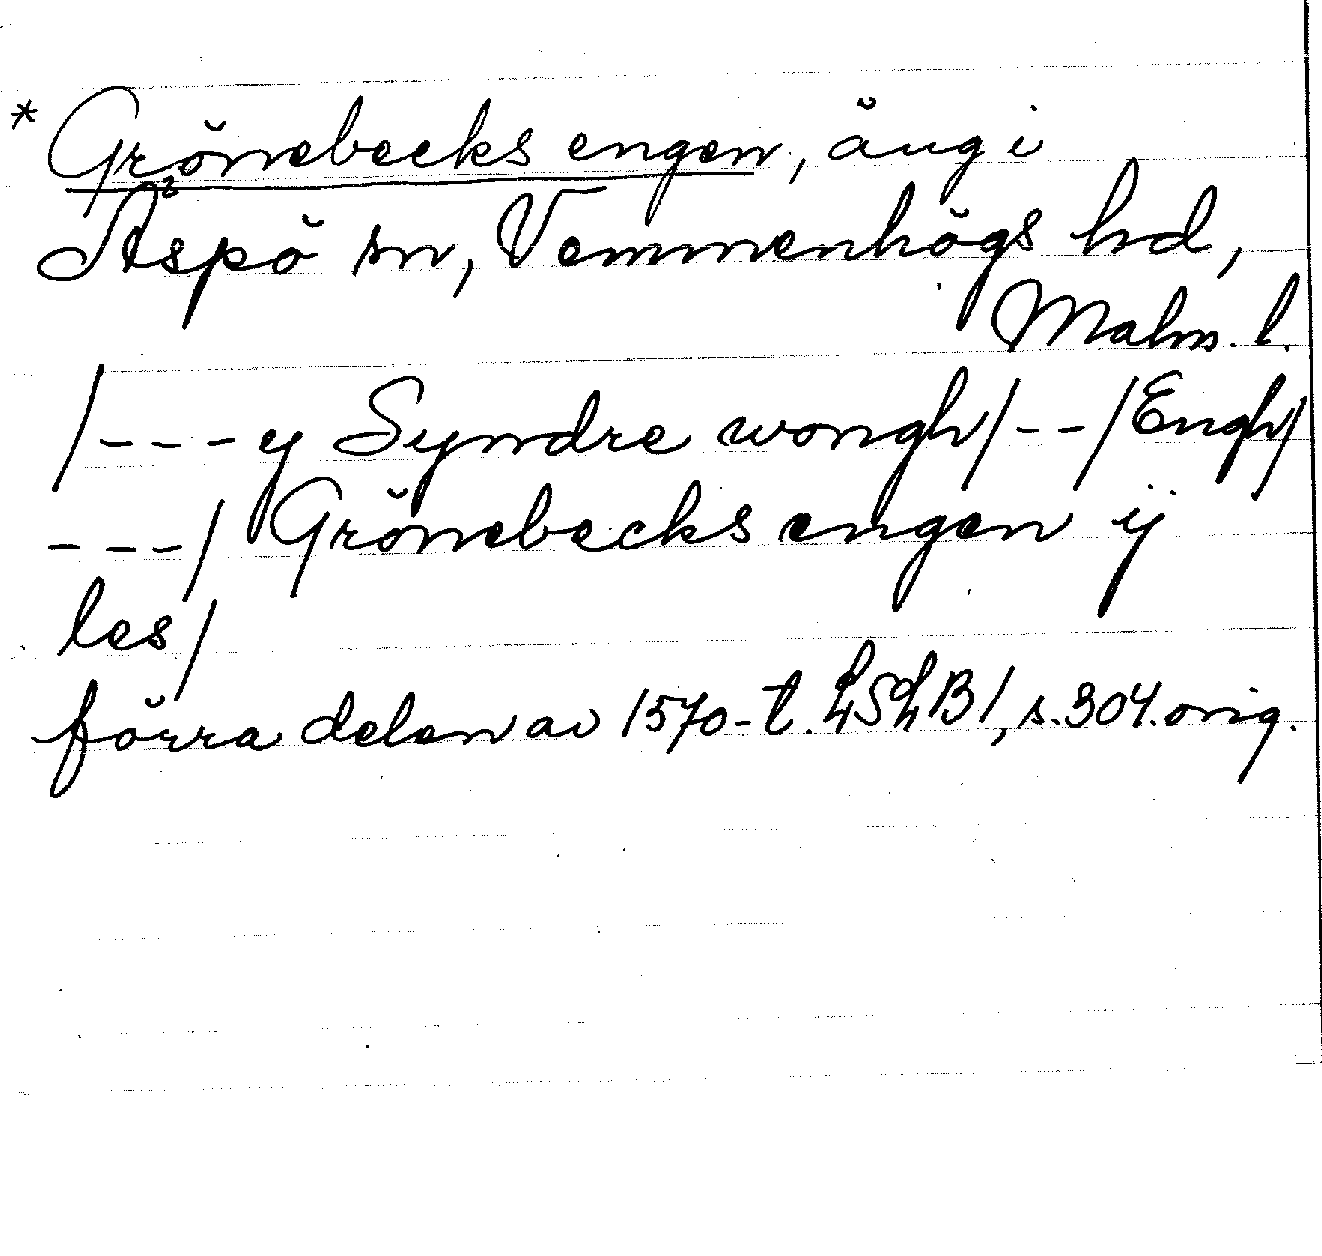 * Grönebecks engen, äng i
Äspö sn, Vemmenhögs hd,
Malm. l.
/---y Syndre wongh/--/Engh/
---/ Grönebecks engen ij
les/
förra delen av 1570-t. LSLB1, s. 304. orig.